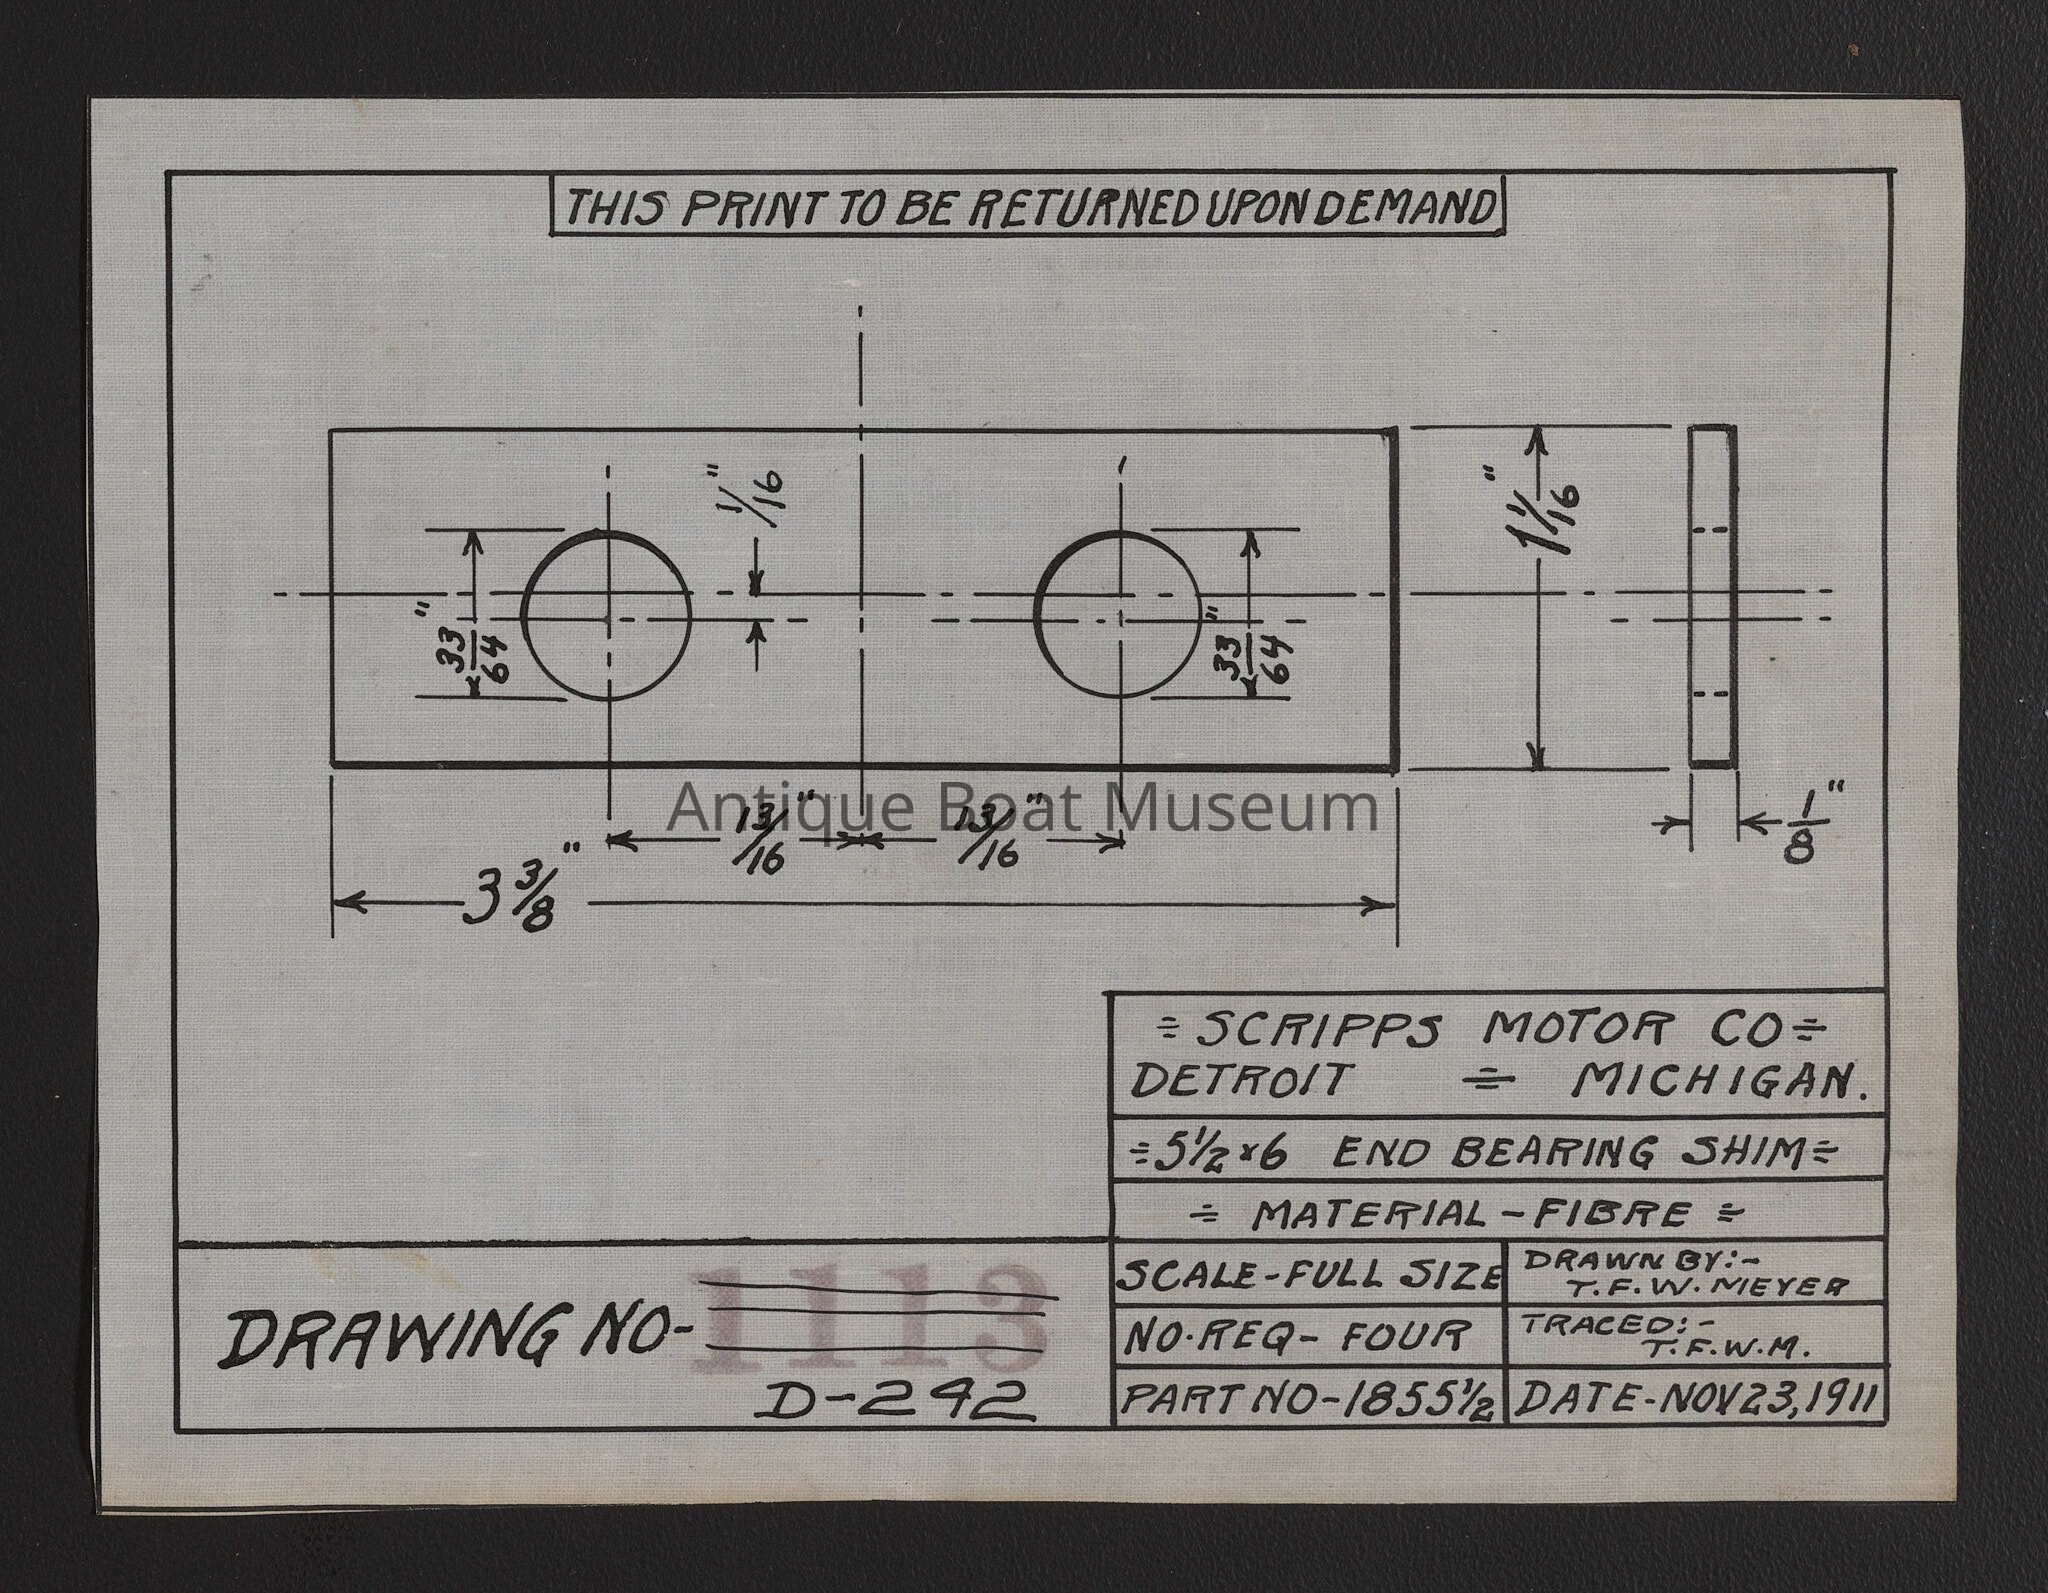 THIS PRINT TO BE RETURNED UPON DEMAND
1/16"
33/64"
33/64"
1 1/16"
Antique Boat Museum
13/16"
13/16"
1/8"
3 3/8"
SCRIPPS MOTOR CO
DETROIT MICHIGAN.
5 1/2 x 6 END BEARING SHIM
MATERIAL - FIBRE
SCALE - FULL SIZE
DRAWN BY:-
T. F. W. MEYER
NO. REQ - FOUR
TRACED:-
T. F. W. M.
PART NO - 1855 1/2
DATE - NOV 23, 1911
DRAWING NO - 1113
D-242